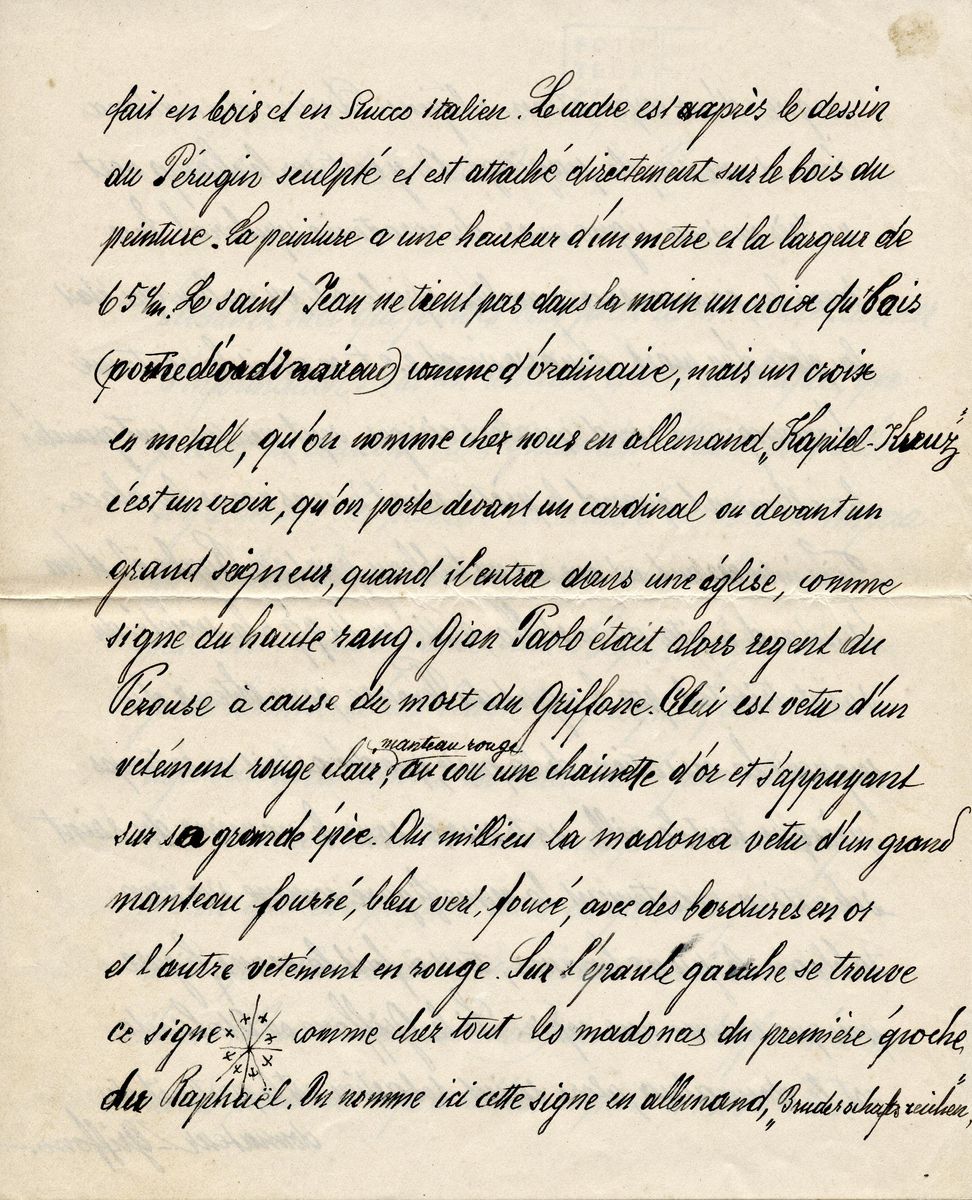 fait en bois et en Stucco italien. Le cadre est après le dessin
du Pérugin sculpté et est attaché directement sur le bois du
peinture. La peinture a une hauteur d'un metre et la largeur de
65 c/m. Le saint Jean ne tient pas dans la main un croix du bois
comme d'ordinaire, mais un croix
en metall, qu'on nomme chez nous en allemand „Kapitel-Kreuz"
c'est un croix, qu'on porte devant un cardinal ou devant un
grand seigneur, quand il entra dans une église, comme
signe du haute rang. Gian Paolo était alors regent du
Pérouse à cause du mort du Griffone. est vetu d'un
manteau rouge
vetément rouge clair, au cou une chainette d'or et s'appuyant
sur sa grande épée. Au millieu la madona vetu d'un grand
manteau fourré, bleu vert, foucé, avec des bordures en or
et l'autre vetément en rouge. Sur l'épaule gauche se trouve
ce signe comme chez tout les madonas du première époche
du Raphaël. On nomme ici cette signe en allemand „Bruderschaftszeichen",